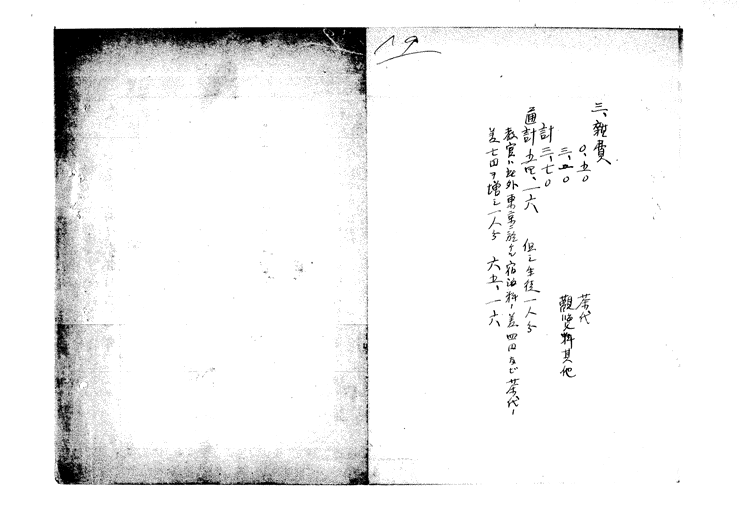 19
三、雜費
〇、五〇 茶代
三、二〇 觀覽料其他
計 三、七〇
通計 五四、一六 但シ生徒一人分
教官ハ此外東京ニ於ケル宿泊料ノ差四円及ビ茶代ノ
差七円ヲ増シ一人分 六五、一六